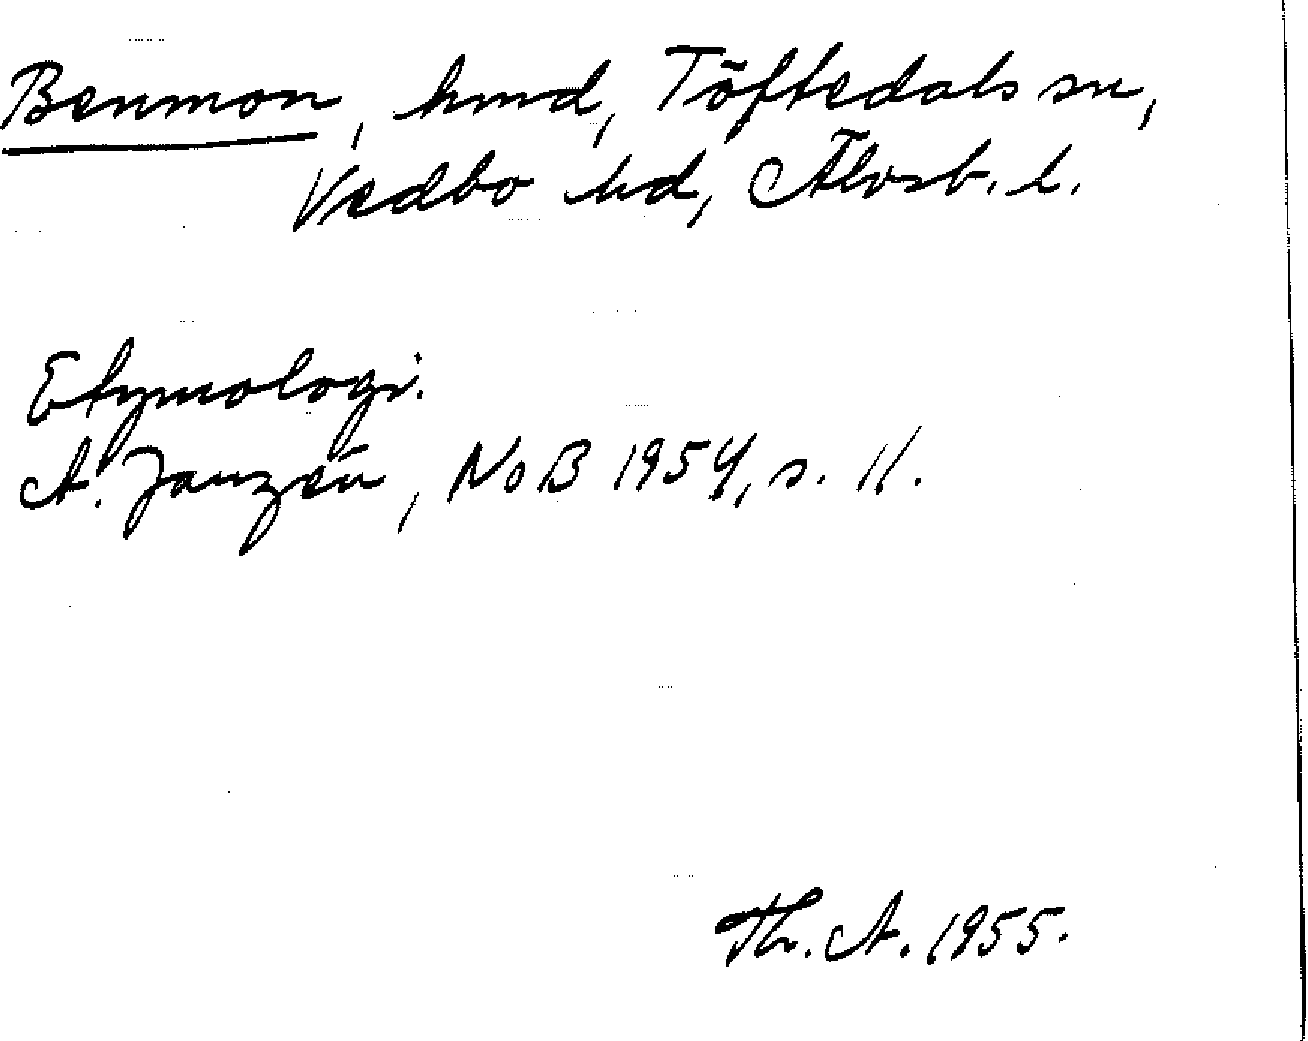 Benmon, hmd, Töftedals sn,
Vedbo hd, Älvsb. l.
Etymologi.
A. Janzén, NoB 1954, s. 11.
Th. A. 1955.